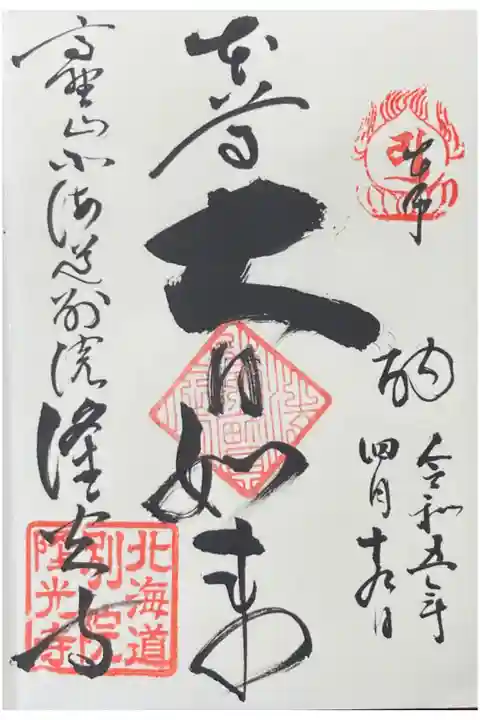 奉
納
令和五年
四月十九日
本尊
大日如来
高野山北海道別院隆光寺
北海道
別院
隆光寺